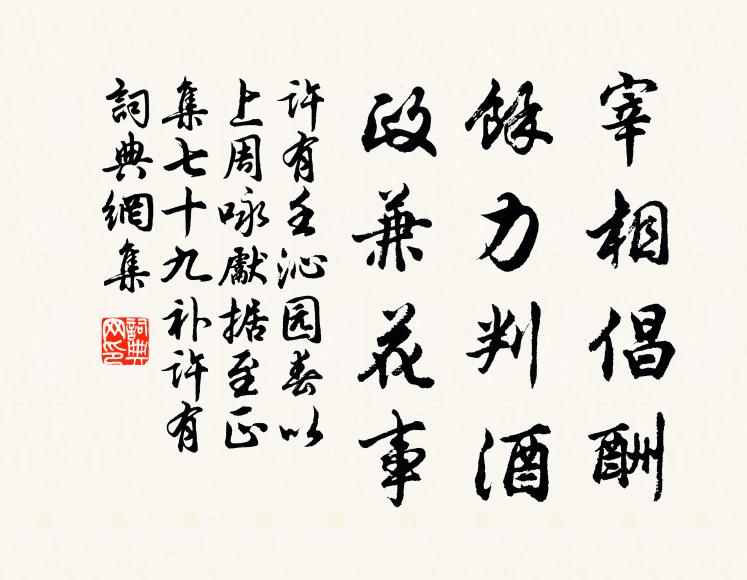 宰相倡酬
餘力判酒
政兼花事
许有壬沁园春以
上周咏獻据至正
集七十九补许有
詞典網集
詞典网印